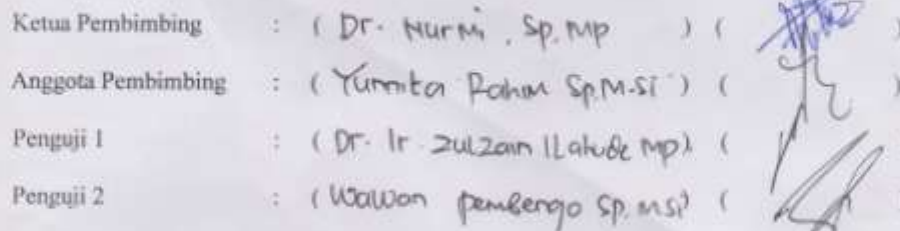 Ketua Pembimbing : ( Dr. Nurmi, Sp. Mp ) ( )
Anggota Pembimbing : ( Yunnita Rahim Sp.M.Si ) ( )
Penguji 1 : ( Dr. Ir Zulzain Ilahude Mp) ( )
Penguji 2 : ( Wawan pembengo Sp. Msi) (